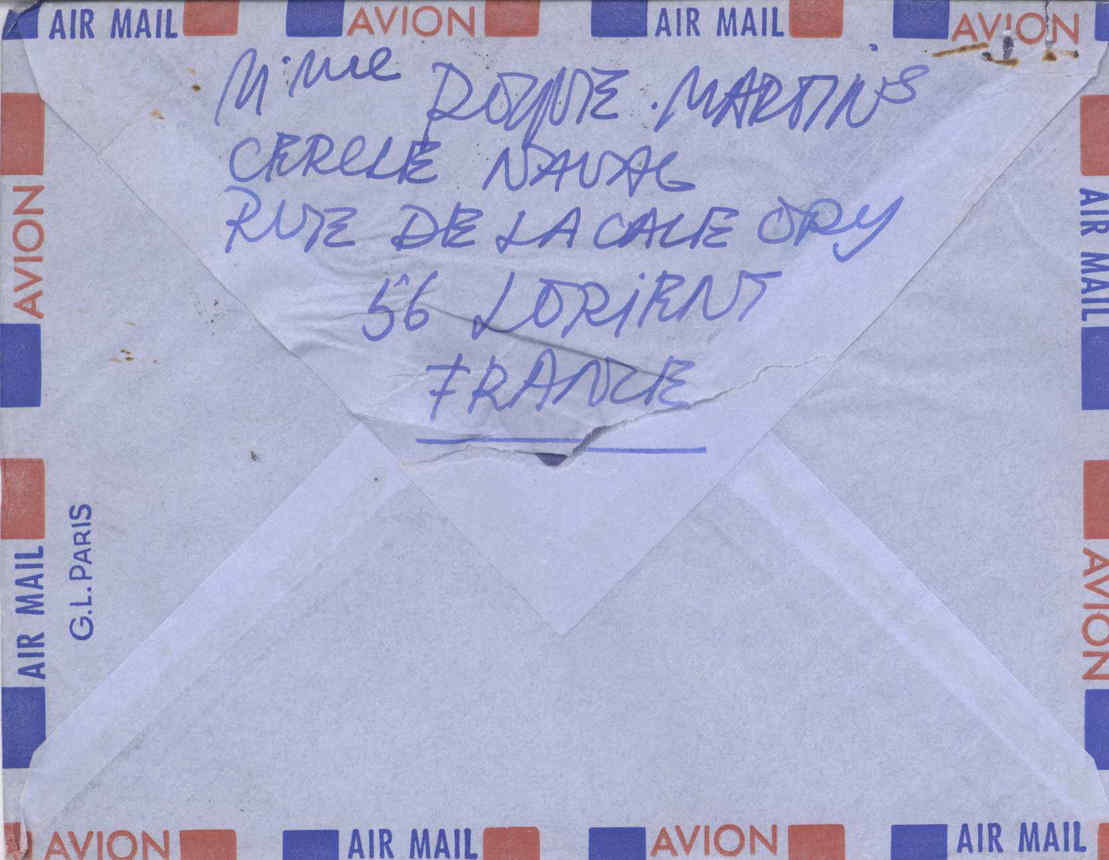 AIR MAIL AVION AIR MAIL AVION
Mme MARTINS
CERCLE NAVAL
RUE DE LA CALE ORY
56 LORIENT
FRANCE
AVION
AIR MAIL
G.L. PARIS
AIR MAIL
AVION
AVION AIR MAIL AVION AIR MAIL